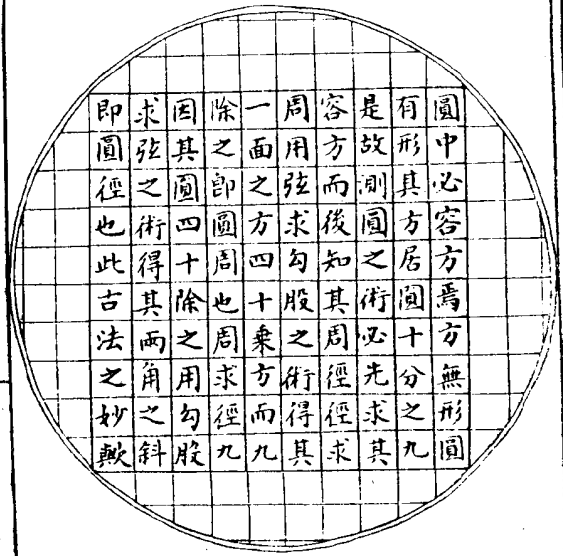 圓中必容方焉方無形圓
有形其方居圓十分之九
是故測圓之術必先求其
容方而後知其周徑徑求
周用弦求勾股之術得其
一面之方四十乗方而九
除之即圓周也周求徑九
因其圓四十除之用勾股
求弦之術得其兩角之斜
即圓徑也此古法之妙歟